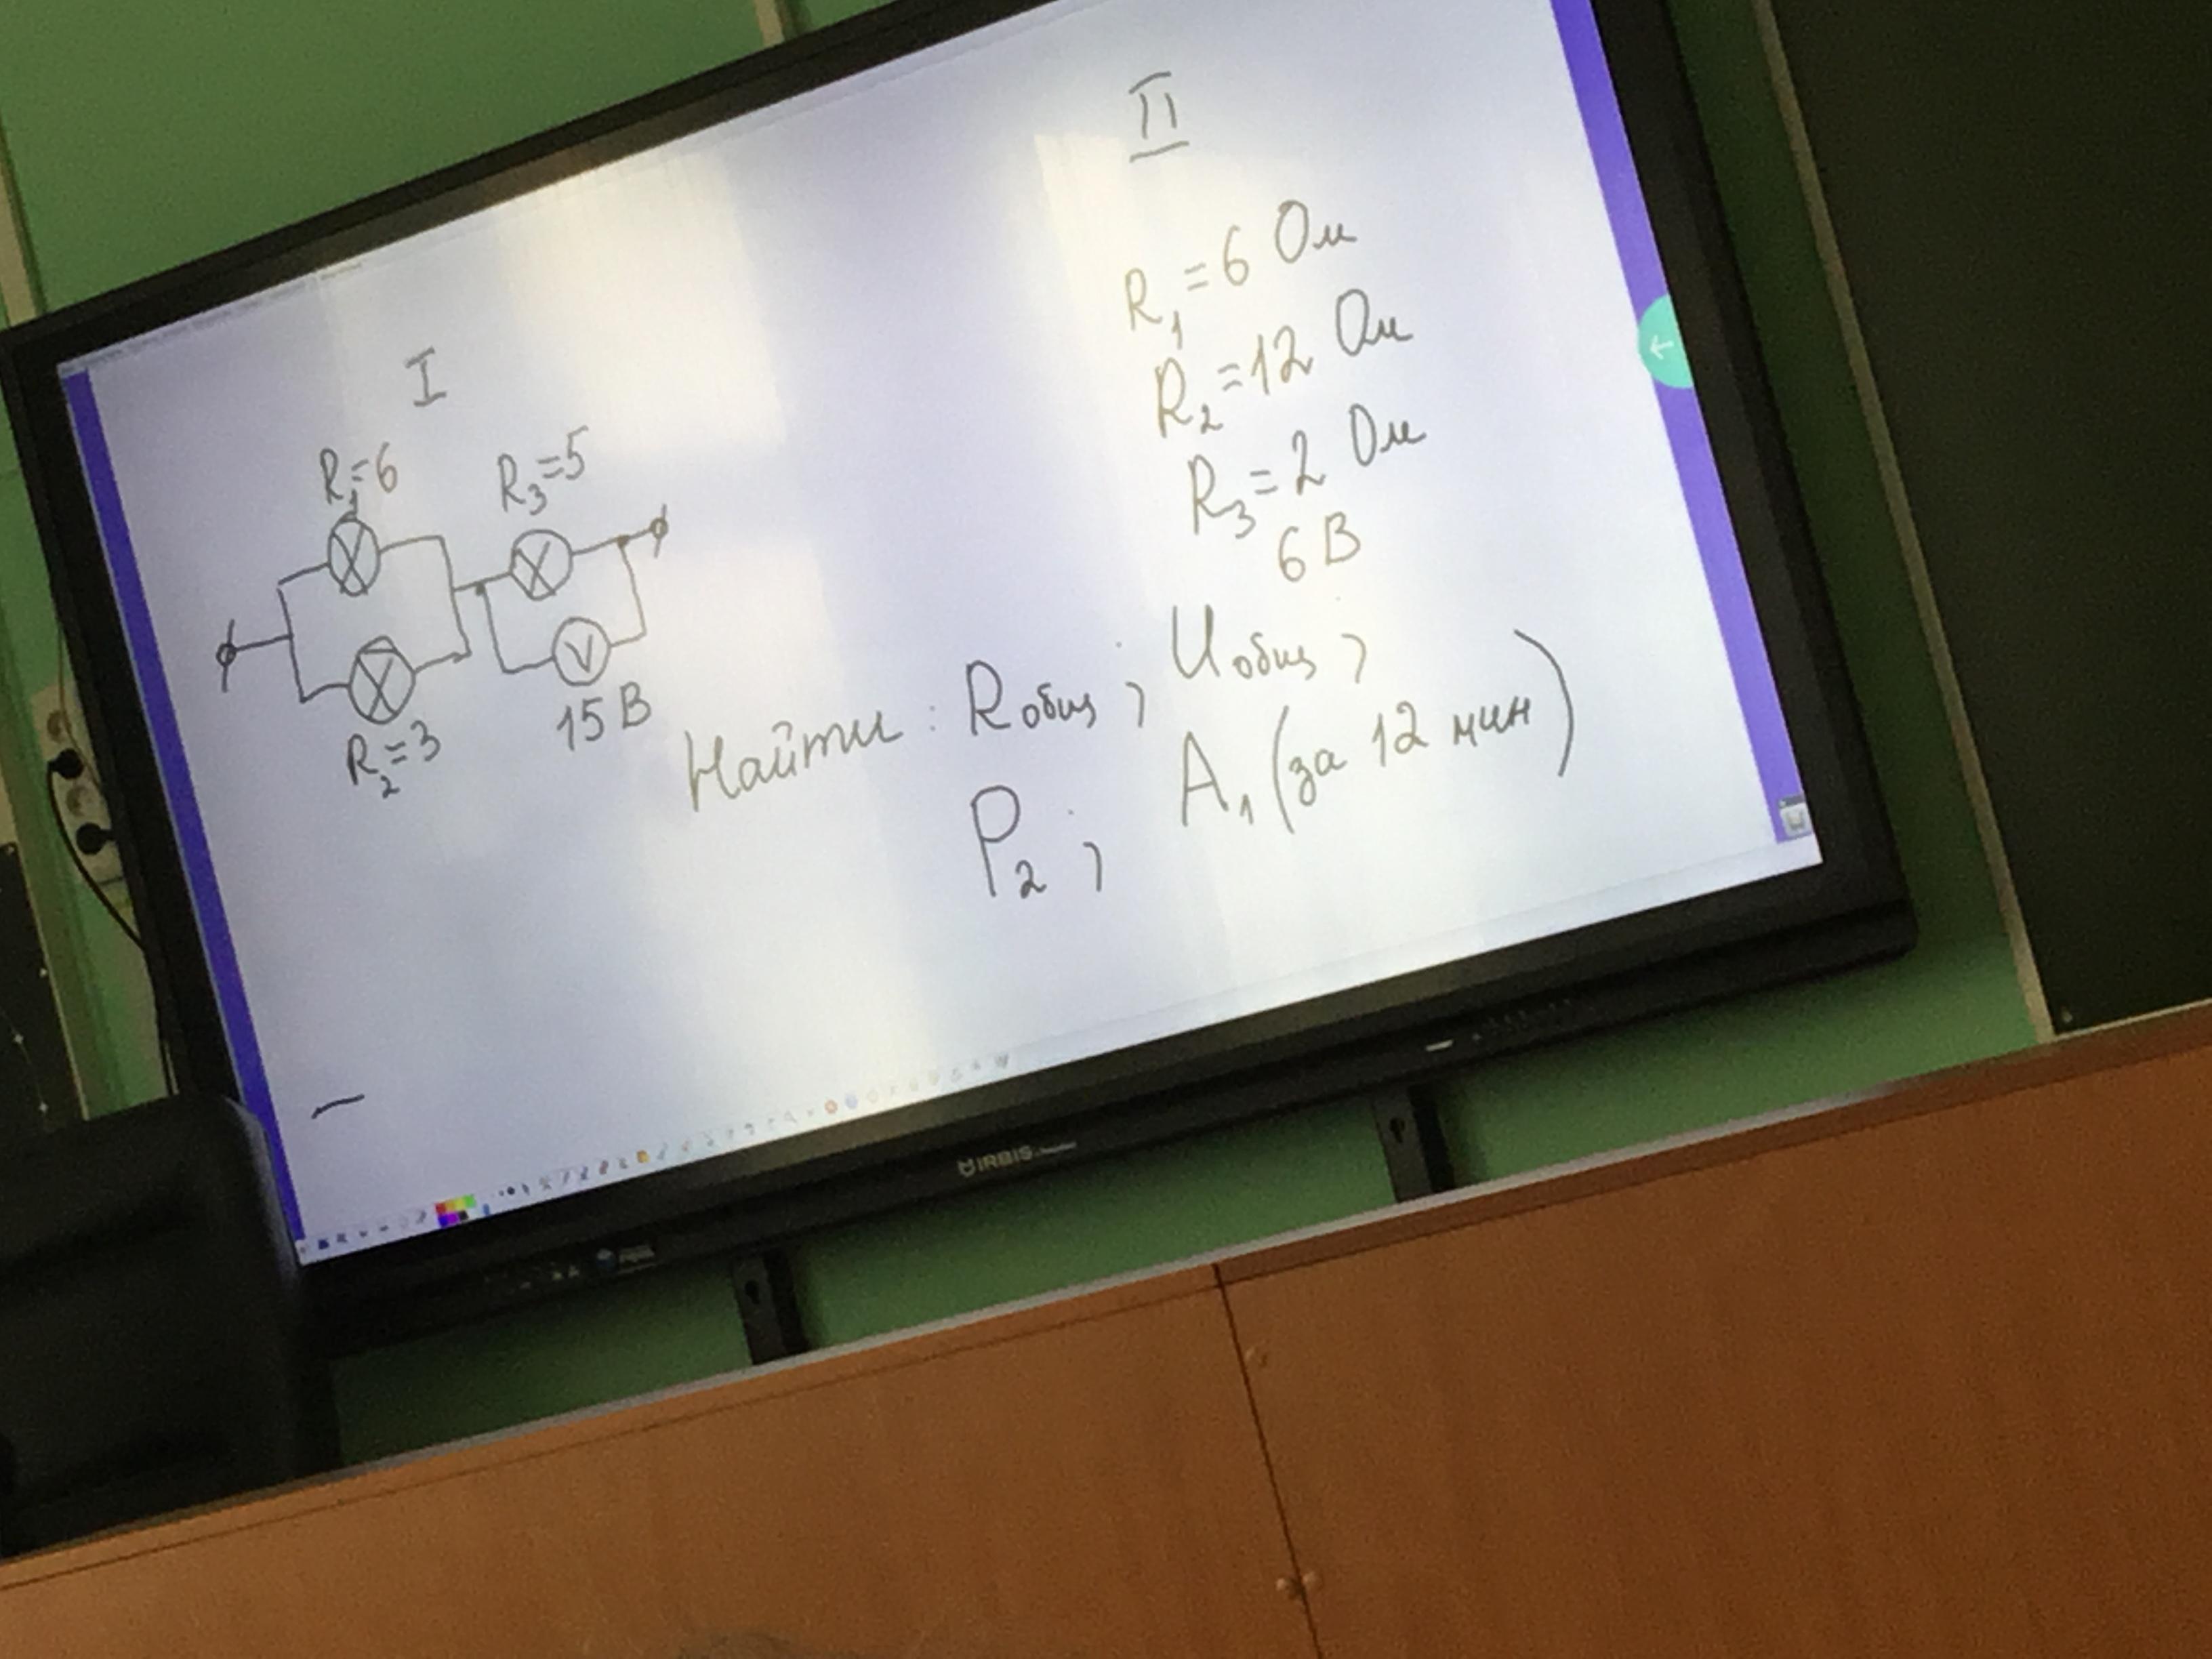 I
R₁=6
R₃=5
V
R₂=3
15 В
II
R₁=6 Ом
R₂=12 Ом
R₃=2 Ом
6 В
Найти: Rобщ; Uобщ;
P₂; A₁ (за 12 мин)
IRBIS